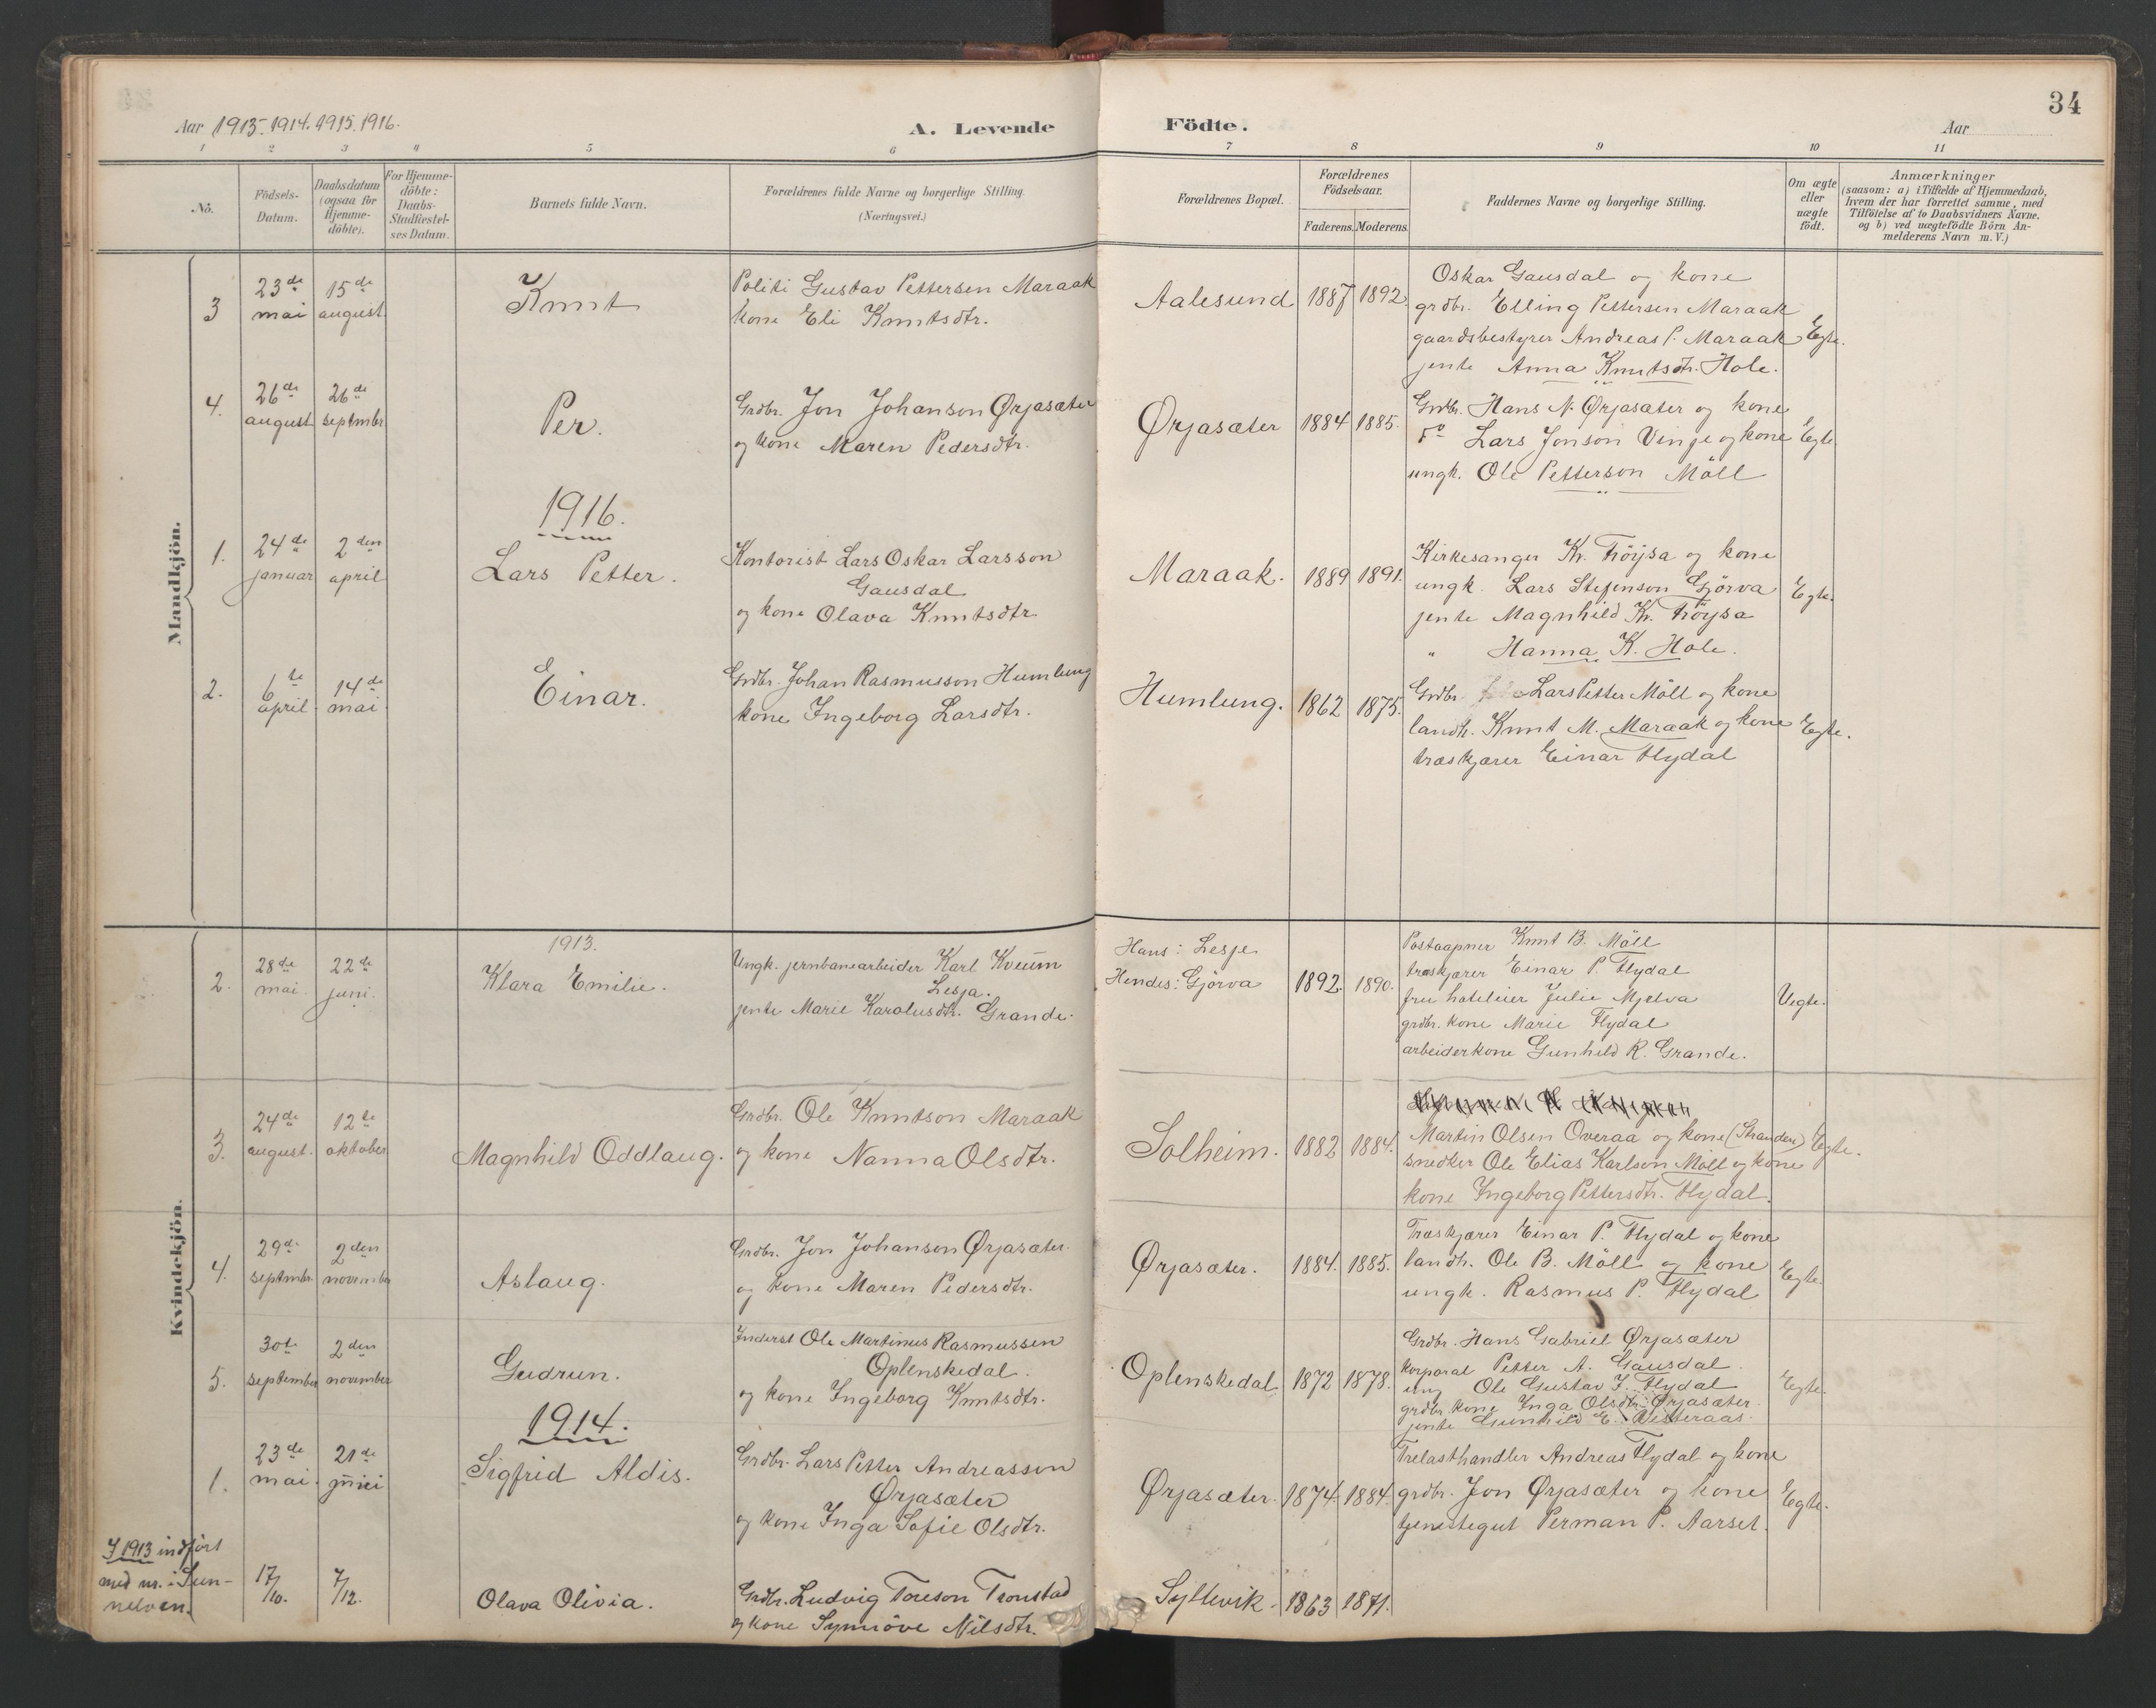 34
Aar 1913. 1914. 1915. 1916.
A. Levende Födte.
Aar
1 2 3 4 5 6 7 8 9 10 11
No.
Födsels-
Datum.
Daabsdatum
(ogsaa for
Hjemme-
döbte).
For Hjemme-
döbte:
Daabs-
Stadfæstel-
ses Datum.
Barnets fulde Navn.
Forældrenes fulde Navne og borgerlige Stilling
(Næringsvei.)
Forældrenes Bopæl.
Forældrenes
Födselsaar.
Faderens. Moderens.
Faddernes Navne og borgerlige Stilling.
Om ægte
eller
uægte
födt.
Anmærkninger
(saasom: a) i Tilfælde af Hjemmedaab,
hvem der har forrettet samme, med
Tilföielse af to Daabsvidners Navne.
og b) ved uægtefödte Börn An-
melderens Navn m. V.)
Mandkjön.
3
23de
mai
15de
august.
Knut
Politi Gustav Pettersen Maraak
kone Eli Knutsdtr.
Aalesund 1887 1892.
Oskar Gausdal og kone
grdbr. Elling Pettersen Maraak
gaardsbestyrer Andreas P. Maraak
jente Anna Knutsdtr. Hole.
Egte.
4.
26de
august
26de
septmbr
Per.
Grdbr. Jon Johanson Ørjasæter
og kone Maren Pedersdtr.
Ørjasæter 1884 1885.
Grdbr. Hans N. Ørjasæter og kone
Do Lars Jonson Vinje og kone
ungk. Ole Petterson Möll
Egte.
1916.
1.
24de
januar
2den
april
Lars Petter.
Kontorist Lars Oskar Larsson
Gausdal
og kone Olava Knutsdtr.
Maraak. 1889 1891.
Kirkesanger Kr. Fröysa og kone
ungk. Lars Stefenson Gjörva
jente Magnhild Kr. Fröysa
" Hanna K. Hole.
Egte.
2.
6te
april
14de
mai
Einar.
Grdbr. Johan Rasmusson Humlung
kone Ingeborg Larsdtr.
Humlung. 1862 1875.
Grdbr. Lars Petter Möll og kone
landh. Knut M. Maraak og kone
træskjærer Einar Flydal
Egte.
Kvindekjön.
1913.
2.
28de
mai.
22de
juni.
Klara Emilie.
Ungk. jernbanearbeider Karl Kveum
Lesja.
jente Marie Karolusdtr. Grande.
Hans: Lesje
Hendes: Gjörva
1892. 1890.
Postaapner Knut B. Möll
træskjærer Einar P. Flydal
fru hoteleier Julie Mjelva
grdbr. kone Marie Flydal
arbeiderkone Gunhild R. Grande.
Uegte.
3.
24de
august.
12te
oktober
Magnhild Oddlaug.
Grdbr. Ole Knutson Maraak
og kone Nanna Olsdtr.
Solheim. 1882 1884.
Martin Olsen Overaa og kone (Stranden)
snedker Ole Elias Karlson Möll og kone
kone Ingeborg Pettersdtr. Flydal.
Egte.
4.
29de
septmbr
2den
november
Aslaug.
Grdbr. Jon Johanson Ørjasæter.
og kone Maren Pedersdtr.
Ørjasæter. 1884. 1885.
Træskjærer Einar P. Flydal og kone
landh. Ole B. Möll og kone
ungk. Rasmus P. Flydal
Egte.
5.
30te
september
2den
november
Gudrun.
Inderst Ole Martinus Rasmussen
Oplenskedal.
og kone Ingeborg Knutsdtr.
Oplenskedal 1872 1878.
Grdbr. Hans Gabriel Ørjasæter
korporal Petter A. Gausdal.
ung Ole Gustav J. Flydal
grdbr. kone Inga Olsdtr. Ørjasæter.
jente Gunhild E. Vesteraas.
Egte.
1914.
1.
23de
mai.
21de
juni
Sigfrid Aldis.
Grdbr. Lars Petter Andreasson
Ørjasæter
og kone Inga Sofie Olsdtr.
Ørjasæter. 1874. 1884.
Trelasthandler Andreas Flydal og kone
grdbr. Jon Ørjasæter og kone
tjenestegut Perman P. Aarset.
Egte.
I 1913 indfört
med nr. i Sun-
nelven.
17/10.
7/12.
Olava Olivia.
Grdbr. Ludvig Toreson Tronstad
og kone Synnöve Nilsdtr.
Syltevik. 1863 1871.